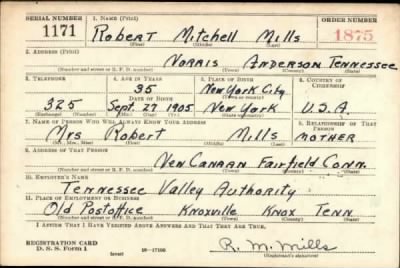 SERIAL NUMBER 1. NAME (Print) ORDER NUMBER
1171 Robert Mitchell Mills 1875
(First) (Middle) (Last)
2. ADDRESS (Print)
Norris Anderson Tennessee
(Number and street or R. F. D. number) (Town) (County) (State)
3. TELEPHONE 4. AGE IN YEARS 5. PLACE OF BIRTH 6. COUNTRY OF CITIZENSHIP
35 New York City
DATE OF BIRTH (Town or county)
325 Sept. 27 1905 New York U.S.A.
(Exchange) (Number) (Mo.) (Day) (Yr.) (State or country)
7. NAME OF PERSON WHO WILL ALWAYS KNOW YOUR ADDRESS 8. RELATIONSHIP OF THAT PERSON
Mrs Robert Mills Mother
(Mr., Mrs., Miss) (First) (Middle) (Last)
9. ADDRESS OF THAT PERSON
New Canaan Fairfield Conn.
(Number and street or R. F. D. number) (Town) (County) (State)
10. EMPLOYER'S NAME
Tennessee Valley Authority
11. PLACE OF EMPLOYMENT OR BUSINESS
Old Postoffice Knoxville Knox Tenn
(Number and street or R. F. D. number) (Town) (County) (State)
I AFFIRM THAT I HAVE VERIFIED ABOVE ANSWERS AND THAT THEY ARE TRUE.
REGISTRATION CARD
D. S. S. Form 1 16—17105 R. M. Mills
(Registrant's signature)